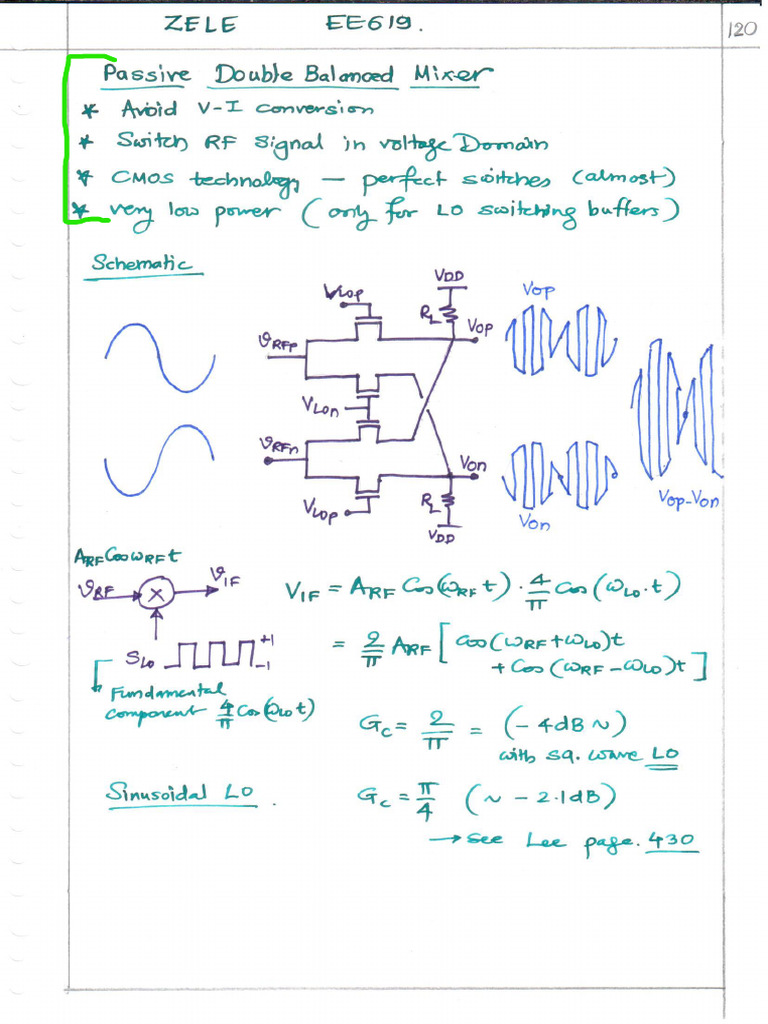 ZELE EE619.
120
Passive Double Balanced Mixer
* Avoid V-I conversion
* Switch RF signal in voltage Domain
* CMOS technology — perfect switches (almost)
* very low power (only for LO switching buffers)
Schematic
VDD
VLop
RL
Vop
Vop
VRFp
VLon
VRFn
Von
VLop
RL
VDD
Von
Vop-Von
ARF Cos ωRF t
VRF × VIF
VIF = ARF Cos(ωRF t) · 4/π Cos(ωLO·t)
SLO +1 -1
= 2/π ARF [Cos(ωRF+ωLO)t
+ Cos(ωRF-ωLO)t]
Fundamental
component 4/π Cos(ωLO t)
Gc = 2/π = (-4dB ~)
with sq. wave LO
Sinusoidal LO.
Gc = π/4 (~ -2.1dB)
→ see Lee page. 430